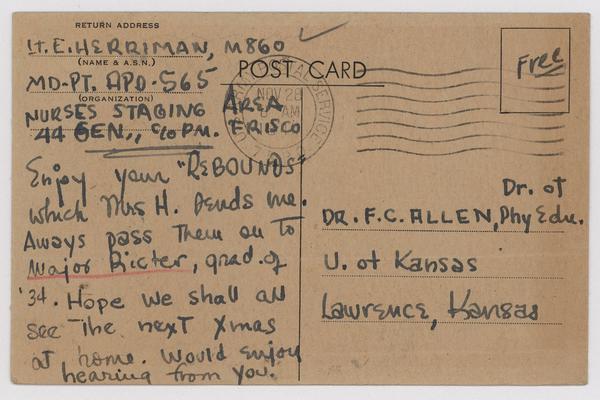 RETURN ADDRESS
Lt. E. HERRIMAN, M860
(NAME & A.S.N.)
MD-PT. APO-565
(ORGANIZATION)
NURSES STAGING AREA
44 GEN., c/o P.M. FRISCO
POST CARD
Free
U.S. ARMY POSTAL SERVICE
NOV 28
AM
Enjoy your "REBOUNDS"
which Mrs H. sends me.
Aways pass them on to
Major Ricter, grad. of
'34. Hope we shall all
see the next Xmas
at home. Would enjoy
hearing from you.
Dr. of
DR. F.C. ALLEN, Phy Edu.
U. of Kansas
Lawrence, Kansas